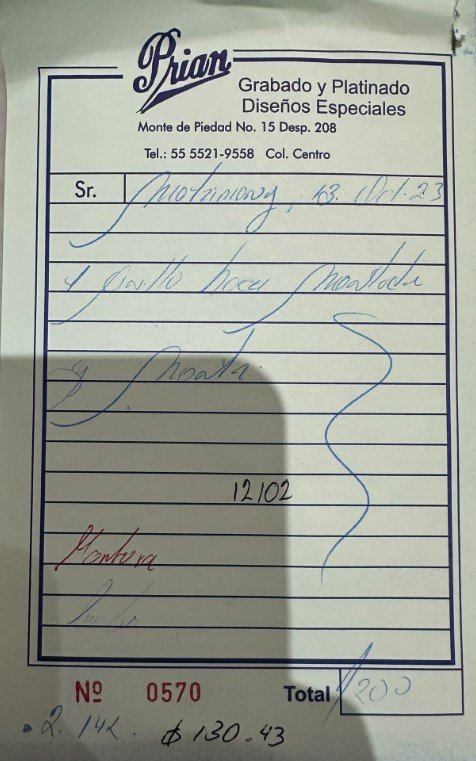 Prian
Grabado y Platinado
Diseños Especiales
Monte de Piedad No. 15 Desp. 208
Tel.: 55 5521-9558 Col. Centro
Sr. 13. Oct. 23
hacer
y
12102
Montura
Nº 0570 Total $200
.2.14k. $130.43